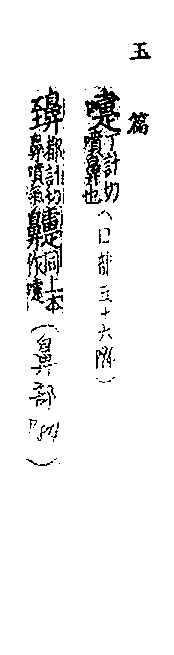 玉篇
嚏丁計切噴鼻也(口部三十六
鼻都計切鼻噴氣同上本作嚏(鼻部